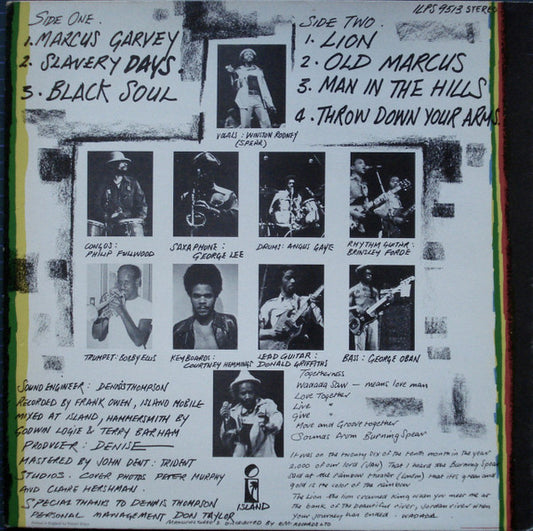 ILPS 9513 STEREO
SIDE ONE.
1. MARCUS GARVEY
2. SLAVERY DAYS.
3. BLACK SOUL
SIDE TWO.
1. LION
2. OLD MARCUS
3. MAN IN THE HILLS
4. THROW DOWN YOUR ARMS.
VOCALS: WINSTON RODNEY
(SPEAR)
CONGOS:
PHILIP FULLWOOD
SAXAPHONE:
GEORGE LEE
DRUMS: ANGUS GAYE
RHYTHM GUITAR:
BRINSLEY FORDE
TRUMPET: BOBBY ELLIS
KEYBOARDS:
COURTNEY HEMMINGS
LEAD GUITAR:
DONALD GRIFFITHS
BASS: GEORGE OBAN
SOUND ENGINEER: DENNIS THOMPSON
RECORDED BY FRANK OWEN, ISLAND MOBILE
MIXED AT ISLAND, HAMMERSMITH BY
GODWIN LOGIE & TERRY BARHAM
PRODUCER: DENISE
MASTERED BY JOHN DENT: TRIDENT
STUDIOS. COVER PHOTOS PETER MURPHY
AND CLAIRE HERSHMAN.
SPECIAL THANKS TO DENNIS THOMPSON
PERSONAL MANAGEMENT DON TAYLOR
ISLAND
MANUFACTURED & DISTRIBUTED BY EMI RECORDS LTD
Togetherness
Wadada Saw - means love man
Love Together
Live "
Give "
Move and Groove together
Sounds from Burning Spear
It was on the twenty six of the tenth month in the year
2,000 of our lord (Jan) That I heard the Burning Spear
Live at the rainbow theatre (London) that its green and
gold is the color of the rainbow
The Lion the lion crowned king when you meet me at
the bank of the beautiful river, Jordan river when
your journey has ended. WADADA